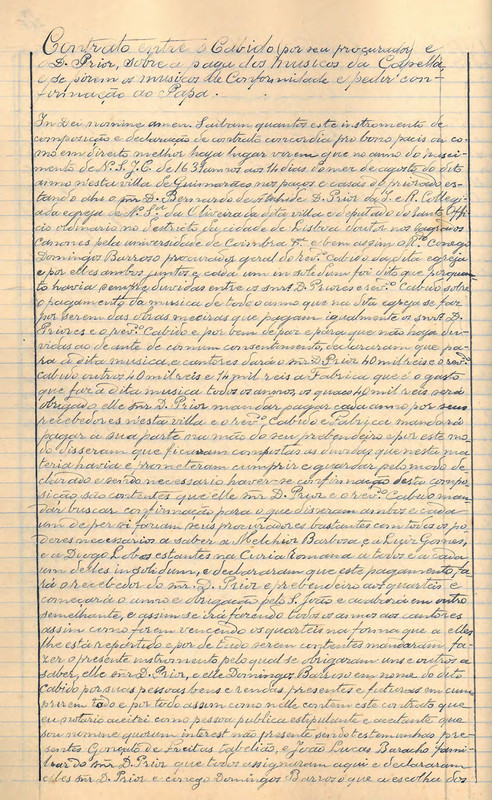 Contrato entre o Cabido (por seu procurador) e
o D. Prior, sobre a paga dos musicos da Capella
e se porem os musicos de Conformidade e pedir con-
firmação ao Papa.
In Dei nomine amen. Saibam quantos este instromento de
composição e declaração de contrato concordia pro bono pacis ou co-
mo em direito melhor haja lugar virem que no anno do nasci-
mento de N. S. J. C. de 1639 annos aos 14 dias do mez de agosto do dito
anno n'esta villa de Guimarães nos paços e casas do priorado es-
tando ahi o snr D. Bernardo de Athaide D. Prior da I. e R. Collegi-
ada egreja de N. Snra da Oliveira da dita villa e deputado do Santo Offi-
cio ordinario no destricto da cidade de Lisboa doutor nos sagrados
canones pela universidade de Coimbra e bem assim o Rdo Conego
Domingos Barrozo procurador geral do revdo Cabido da dita egreja
e por elles ambos juntos e cada um in solidum foi dito que porquan-
to havia sempre duvidas entre os snrs D. Priores e revdo Cabido sobre
o pagamento da musica de todo o anno que na dita egreja se faz
por serem das obras meeiras que pagam igualmente os snrs D.
Priores e o revdo Cabido e por bem de paz e para que não haja du-
vidas ao deante de comum consentimento, declararam que pa-
ra a dita musica, e cantores dará o snr D. Prior 40 mil reis e o revdo
cabido outros 40 mil reis e 14 mil reis a Fabrica que é o gasto
que faz a dita musica todos os annos, os quaes 40 mil reis será
obrigado elle snr D. Prior mandar pagar cada anno por seus
recebedores n'esta villa e o revdo Cabido e Fabrica mandará
pagar a sua parte na mão do seu prebendeiro e por este mo-
do disseram que ficavam compostas as duvidas que nesta ma-
teria havia e prometeram cumprir e guardar pelo modo de-
clarado e sendo necessario haver-se confirmação desta compo-
sição são contentes que elle snr D. Prior e o revdo Cabido man-
dar buscar confirmação para o que disseram ambos e cada
um de per si faziam seus procuradores bastantes com todos os po-
deres necessarios a saber a Melchior Barbosa, e a Luiz Gomes,
e a Diogo Lobos estantes na Curia Romana a todos e a cada
um delles in solidum, e declararam que este pagamento, fa-
rá o recebedor do snr D. Prior e prebendeiro aos quarteis e
começará o anno e obrigação pelo S. João e acabará em outro
semelhante, e assim se irá fazendo todos os annos aos cantores
assim como forem vencendo os quarteis na forma que a elles
lhe está repartido e por de tudo serem contentes mandaram fa-
zer o presente instromento pelo qual se obrigaram uns e outros a
saber, elle snr D. Prior, e elle Domingos Barrozo em nome do dito
cabido por suas pessoas bens e rendas presentes e futuras em cum-
prirem todo e por todo assim como nelle contem este contrato que
eu notario aceitei como pessoa publica estipulante e aceitante que
seu nomine quorum interest não presente sendo testemunhas pre-
sentes Gonçalo de Freitas tabelião, e João Lucas Baracho, fami-
liar do snr D. Prior que todos assignaram aqui e declararam
elles snr D. Prior e conego Domingos Barrozo que a escolha dos